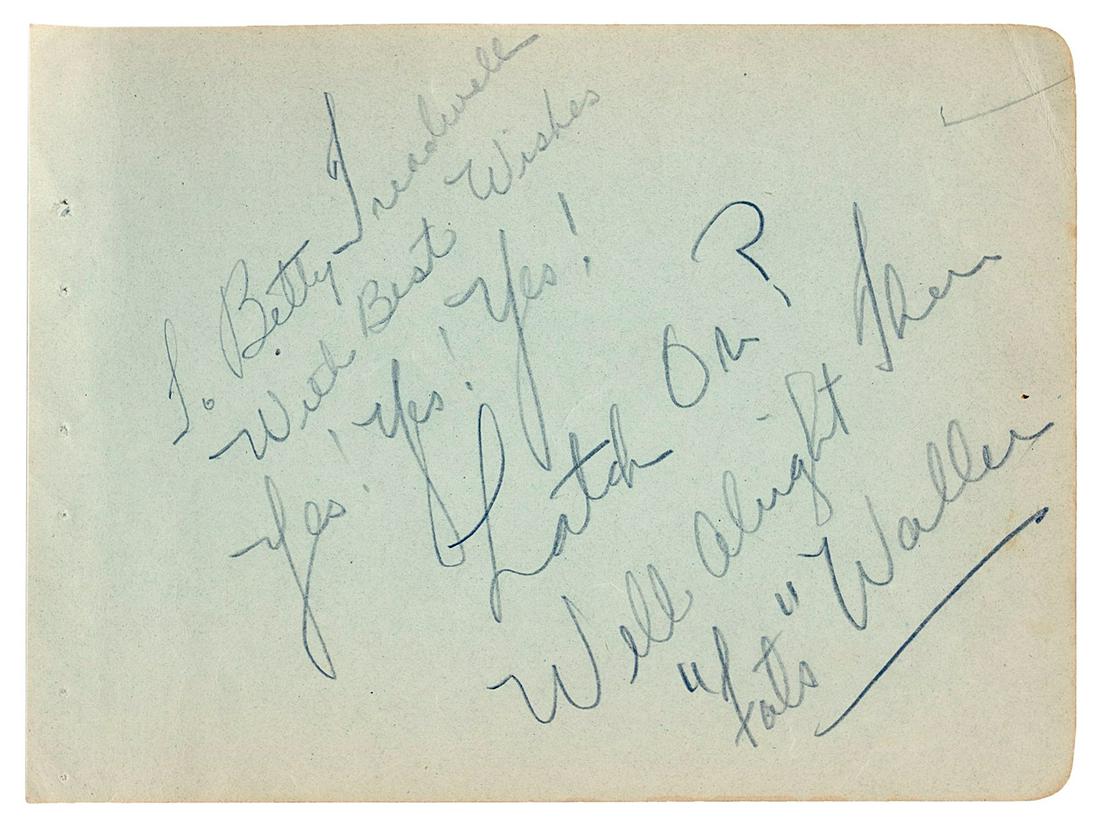 To Betty Treadwell
With Best Wishes
Yes! Yes! Yes!
Latch On?
Well Alright Then
"Fats" Waller